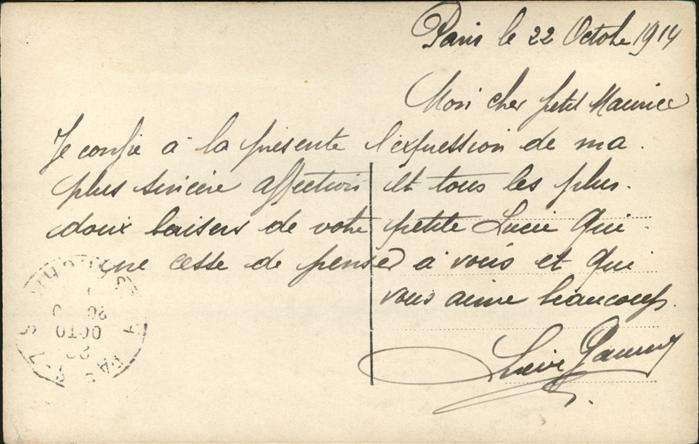 Paris le 22 Octobre 1914
Mon cher petit Maurice
Je confie à la présente l'expression de ma
plus sincère affection et tous les plus
doux baisers de votre petite Lucie qui
ne cesse de penser à vous et qui
vous aime beaucoup.
Lucie
PARIS
OCTO